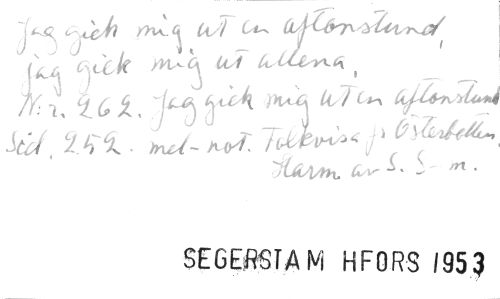 Jag gick mig ut en aftonstund,
jag gick mig ut allena,
N:r. 262. Jag gick mig ut en aftonstund
Sid. 252. mel-not. Folkvisa fr Österbotten.
Harm. av S. S-m.
SEGERSTAM HFORS 1953